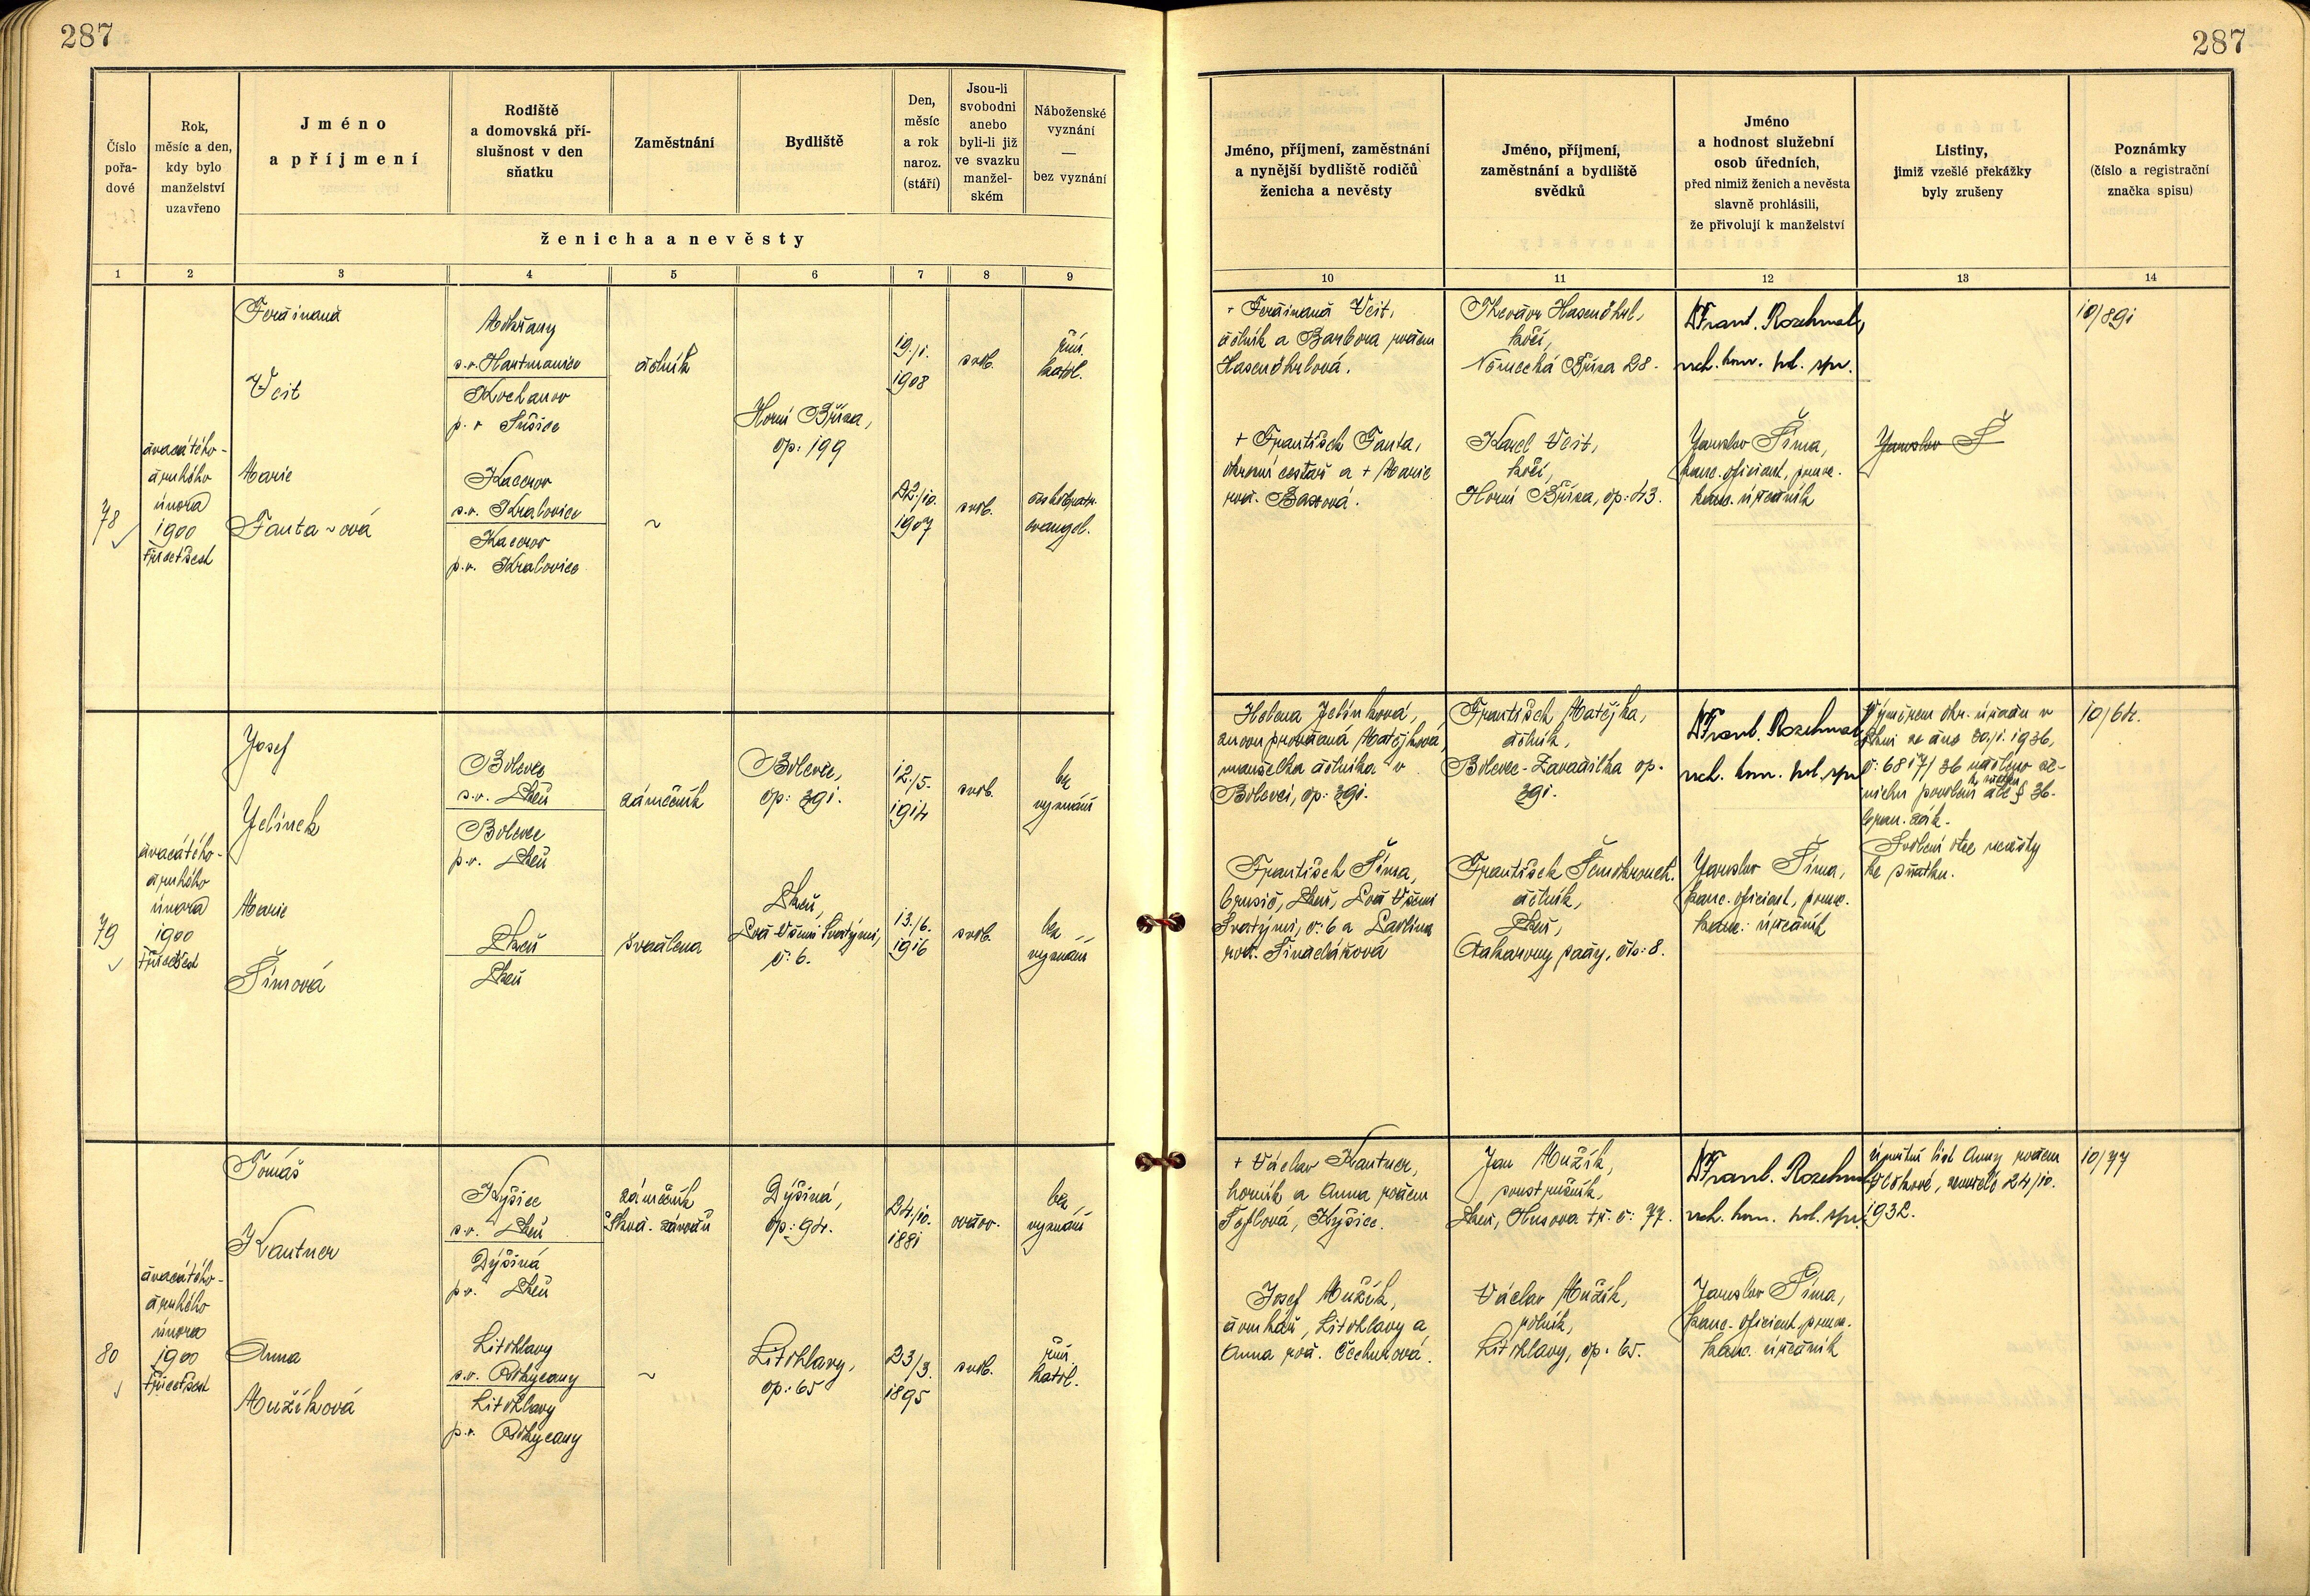 287
287
Číslo
pořa-
dové
Rok,
měsíc a den,
kdy bylo
manželství
uzavřeno
Jméno
a příjmení
Rodiště
a domovská pří-
slušnost v den
sňatku
Zaměstnání
Bydliště
Den,
měsíc
a rok
naroz.
(stáří)
Jsou-li
svobodni
anebo
byli-li již
ve svazku
manžel-
ském
Náboženské
vyznání
—
bez vyznání
ženicha a nevěsty
Jméno, příjmení, zaměstnání
a nynější bydliště rodičů
ženicha a nevěsty
Jméno, příjmení,
zaměstnání a bydliště
svědků
Jméno
a hodnost služební
osob úředních,
před nimiž ženich a nevěsta
slavně prohlásili,
že přivolují k manželství
Listiny,
jimiž vzešlé překážky
byly zrušeny
Poznámky
(číslo a registrační
značka spisu)
1 2 3 4 5 6 7 8 9
10 11 12 13 14
78
dvacátého-
druhého
února
1900
třicetšest
Ferdinand
Veit
Mokřany
s.o. Hartmanice
Kochanov
p. o. Sušice
dělník
Horní Bříza,
čp: 199
19./1.
1908
svob.
řím.
katol.
Marie
Fanta~ová
Kacerov
s.o. Kralovice
Kacerov
p.o. Kralovice
~
22./10.
1907
svob.
českobratr.
evangel.
+ Ferdinand Veit,
dělník a Barbora rodem
Hasenöhrlová.
+ František Fanta,
okresní cestář a + Marie
rod. Baxová.
Theodor Hasenöhrl,
kočí,
Německá Bříza 28.
Karel Veit,
kočí,
Horní Bříza, čp: 43.
Dr Frant. Rozehnal,
rch. kom. pol. spr.
Jaroslav Šíma,
kanc. oficiant, pomoc.
kanc. úředník
Jaroslav Š
10/891
79
dvacátého-
druhého
února
1900
třicetšest
Josef
Jelínek
Bolevec
s.o. Plzeň
Bolevec
p.o. Plzeň
zámečník
Bolevec,
čp: 391.
12./5.
1914
svob.
bez
vyznání
Marie
Šímová
Plzeň
Plzeň
švadlena
Plzeň,
Pod Všemi Svatými,
č: 6.
13./6.
1916
svob.
bez
vyznání
Helena Jelínková,
znovu provdaná Matějková,
manželka dělníka v
Bolevci, čp: 391.
František Šíma,
brusič, Plzeň, Pod Všemi
Svatými, č: 6 a Pavlina
rod. Sindelářová
František Matějka,
dělník,
Bolevec-Zavadilka čp.
391.
František
dělník,
Plzeň,
Otakarovy sady, čís: 8.
Dr Frant. Rozehnal,
rch. kom. pol. spr.
Jaroslav Šíma,
kanc. oficiant, pomoc.
kanc. úředník
Výměrem okr. úřadu v
Plzni ze dne 30./1. 1936,
č: 6817/36 uděleno že-
nichu povolení dle § 36.
bran. zák.
Svolení otce nevěsty
ke sňatku.
80
dvacátého-
druhého
února
1900
třicetšest
Tomáš
Kantner
Kyšice
s.o. Plzeň
Dýšiná
p.o. Plzeň
zámečník
Škod. závodů
Dýšiná,
čp: 94.
24./10.
1881
ovdov.
bez
vyznání
Anna
Mužíková
Litohlavy
s.o. Rokycany
Litohlavy
p.o. Rokycany
~
Litohlavy,
čp: 65
23/3.
1895
svob.
řím.
katol.
+ Václav Kantner,
horník a Anna rodem
Toflová, Kyšice.
Josef Mužík,
domkář, Litohlavy a
Anna rod. Čechurová.
Jan Mužík,
soustružník,
Plzeň, Husova tř. č: 77.
Václav Mužík,
rolník,
Litohlavy, čp. 65.
Dr Frant. Rozehnal,
rch. kom. pol. spr.
Jaroslav Šíma,
kanc. oficiant, pomoc.
kanc. úředník
úmrtní list Anny rodem
zemřelé 24/10.
1932.
10/77